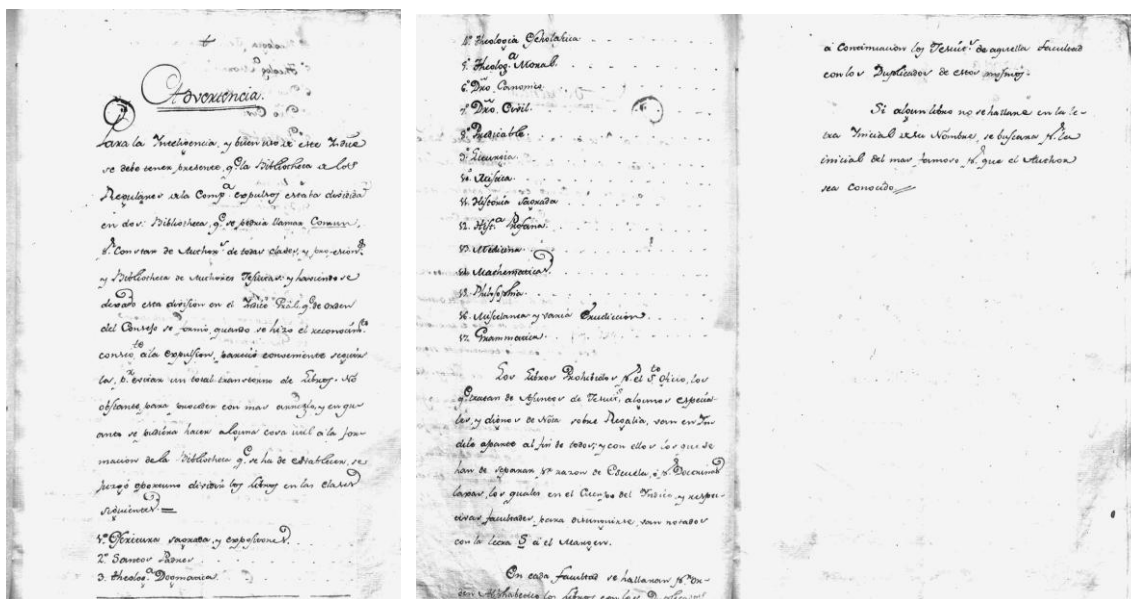 Advertencia.
Para la Inteligencia, y buen uso de este Indice
se debe tener presente, q.e la Bibliotheca de los
Regulares de la Comp.a expulsos estaba dividida
en dos: Bibliotheca, q.e se podria llamar Comun,
p.r Constar de Author.s de todas clases, y profesion.s
y Bibliotheca de Authores Jesuitas: y haviendose
observado esta division en el Indice Gral. q.e de orden
del Consejo se formó, quando se hizo el reconocim.to
á la expulsion, pareció conveniente seguir
la, p.r evitar un total transtorno de Libros. No
obstante, para proceder con mas arreglo, y en qu
anto se pudiera hacer alguna cosa util á la for
macion de la Bibliotheca q.e se ha de establecer, se
juzgó oportuno dividir los libros en las clases
siguientes =
1.a Escritura sagrada, y expositores
2.a Santos Padres
3. Theolog.a Dogmatica
4.a Theologia Scholastica
5.a Theolog.a Moral
6.a Dro. Canonico
7.a Dro. Civil
8.a Predicable
9.a
10.a Mistica
11. Historia Sagrada
12. Hist.a Profana
13. Medicina
14. Mathematica
15. Philosophia
16. Miscelanea y varia Erudiccion
17. Grammatica
Los Libros Prohibidos p.r el S.to Oficio, los
q.e tratan de Asuntos de Jesuit.s, algunos especia
les, y dignos de Nota sobre Regalia, van en In
dice aparte al fin de todos; y con ellos los que se
han de separar p.r razon de Escuela, ó p.r Doctrinas
laxas, los quales en el Cuerpo del Indice, y respec
tivas facultades, para distinguirse, van notados
con la letra S á el Margen.
En cada facultad se hallaran p.r or
den Alphabetico los Libros con los Duplicados
á Continuacion los Jesuit.s de aquella facultad
con los Duplicados de estos mismos.
Si algun libro no se hallare en la le
tra Inicial de su Nombre, se buscara p.r la
inicial del mas famoso, p.r que el Author
sea conocido